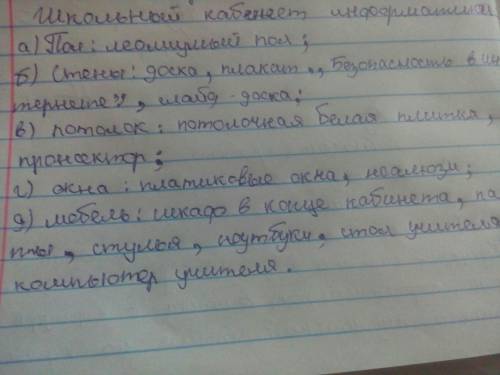 Школьный кабенает информатики
а) Пол: леолиумый пол;
б) Стены: доска, плакат „Безопасность в ин
тернете", майд-доска;
в) потолок: потолочная белая плитка,
проноектор;
г) окна: платиковые окна, ноалюзи;
д) мобель: шкафо в конце кабинета, па
ты, стулья, ноутбуки, стол учителя
компьютер учителя.